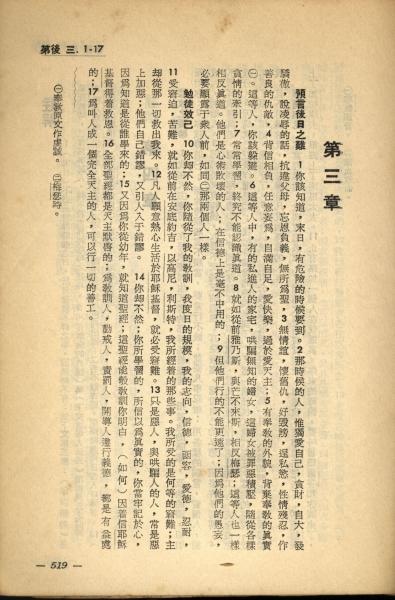 第後 三．1-17
第三章
預言後日之難　1你該知道，末日，有危險的時候要到。2那時候的人，惟獨愛自己，貪財，自大，發
驕傲，說凌辱的話，抗違父母，忘恩負義，無所爲聖，3無情誼，懷舊仇，好毀謗，逞私慾，性情殘忍，作
善良的仇敵，4背信相負，任意妄爲，自滿自足，愛快樂，過於愛天主；5有奉教的外貌，背棄奉教的眞實
㊀。這等人，你該躱避。6這等人中，有的私進人的家宅，哄騙無知的婦女，這婦女被罪惡積壓，隨從各樣
貪情的牽引；7常常學習，終究不能認識眞道。8就如從前雅乃斯，與芒不來斯，相反梅瑟；這等人也一樣
相反眞道。他們是心術敗壞的人；在信德上是毫不中用的；9但他們行的不能更遠了；因爲他們的愚妄，
必要顯露于衆人前，如同㊁那兩個人一樣。
勉徒效己　10你却不然，你隨從了我的教訓，我度日的規模，我的志向，信德，涵容，愛德，忍耐，
11受窘迫，苦難，就如從前在安底約吉，以高尼，利斯特，我所經着的那些事。我所受的是何等的窘難；主
却從那一切救出我來。12凡人願意熱心生活於耶穌基督，就必受窘難。13只是惡人，與哄騙人的人，常是惡
上加惡；他們自己錯謬，又引人入于錯謬。　14你却不然；你所學習的，所信以爲眞實的，你當牢記於心，
因爲知道是從誰學來的；15又因爲你從幼年，就知道聖經；這聖經能教訓你明白，（如何）因着信耶穌
基督得着救恩。16全部聖經都是天主默啓的；爲教訓人，勸戒人，責罰人，開導人進行義德，都是有益處
的；17爲叫人成一個完全天主的人，可以行一切的善工。
㊀奉教原文作虔誠。　㊁梅瑟時。
— 519 —